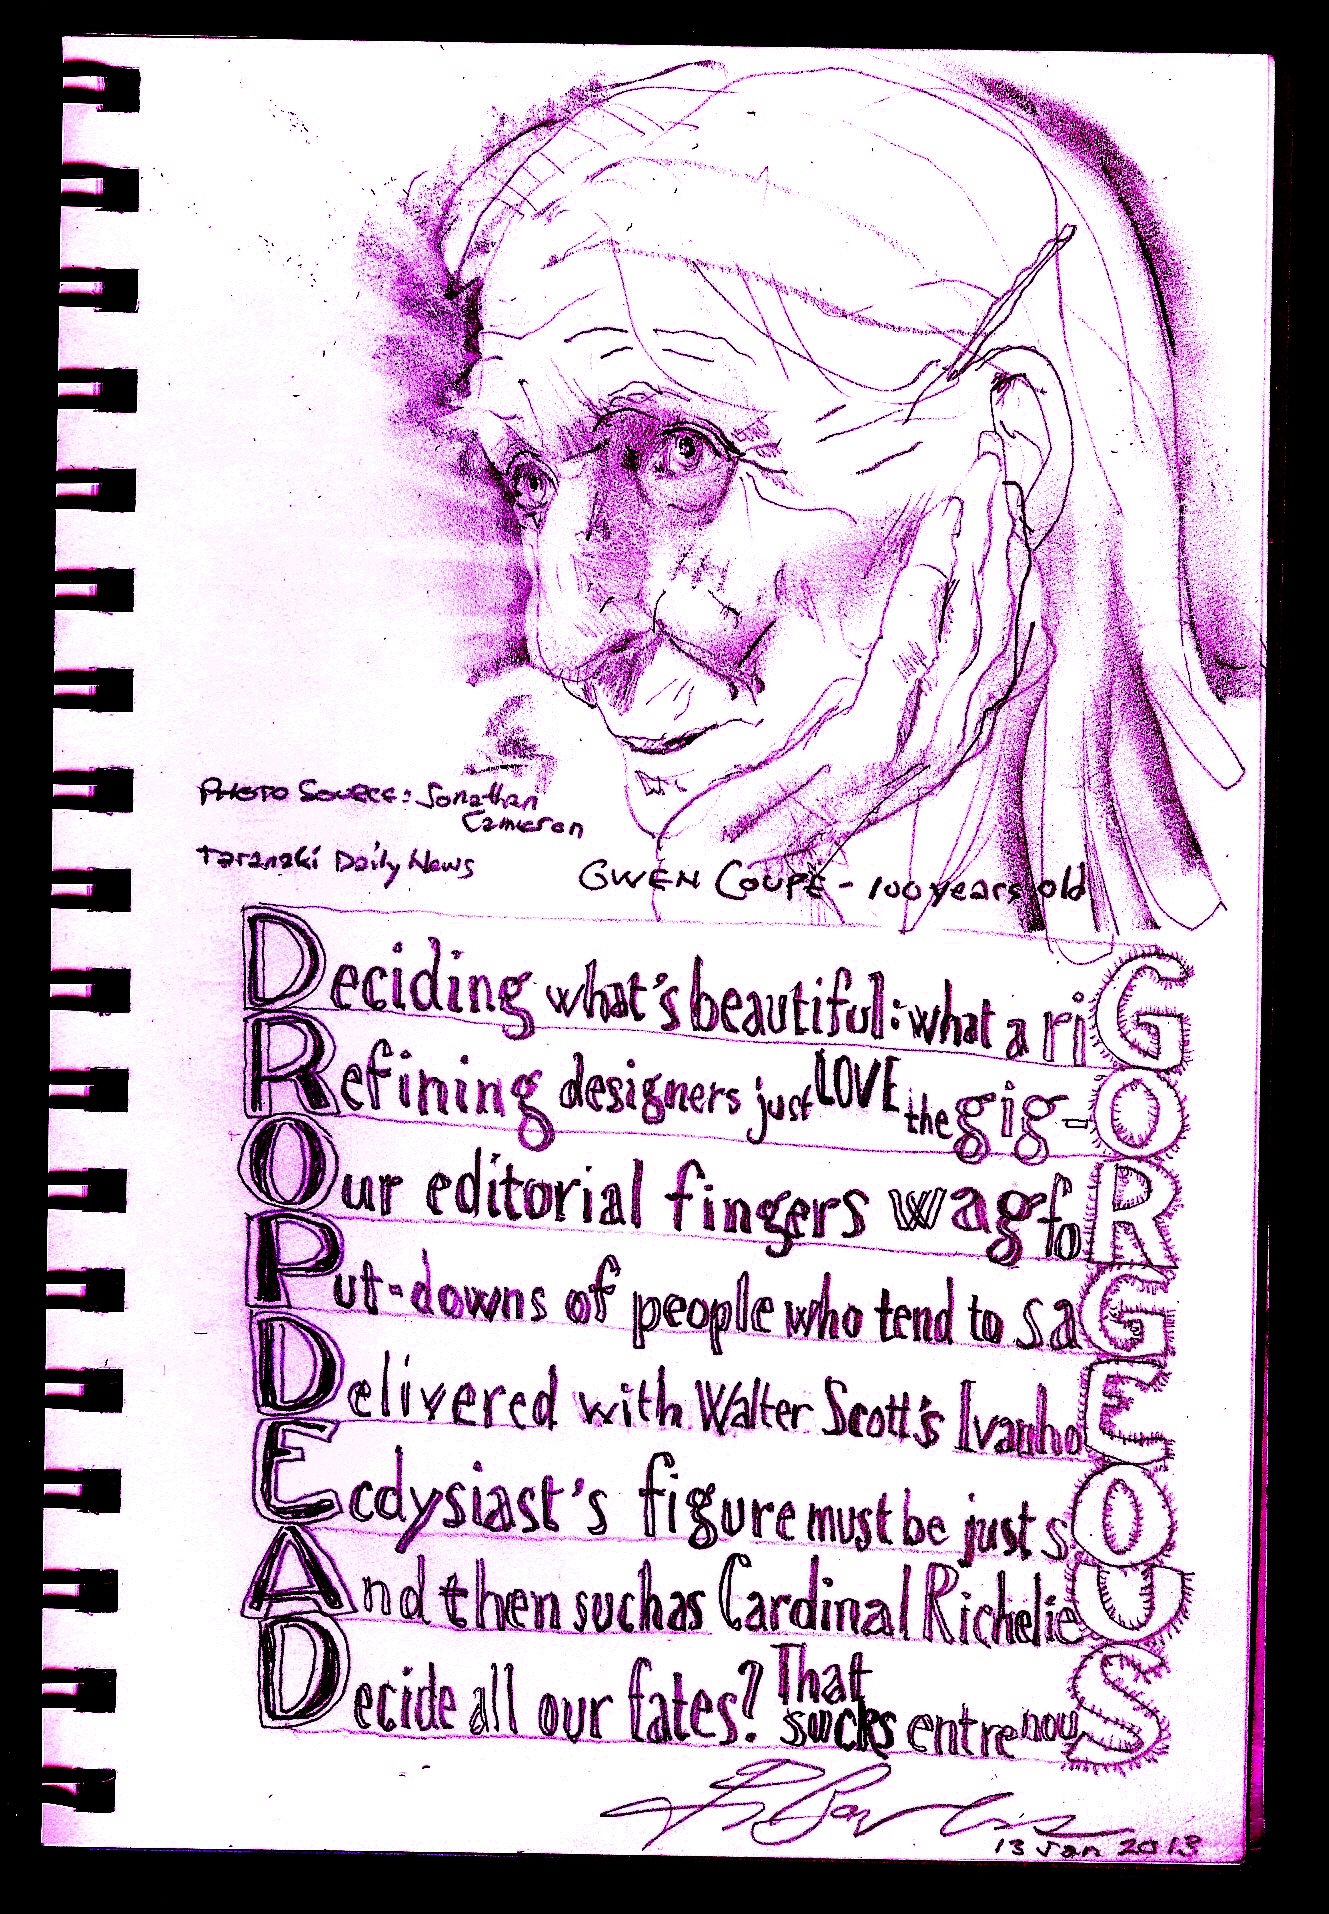 Photo Source: Jonathan
Cameron
Taranaki Daily News
GWEN COUPE - 100 years old
Deciding what's beautiful: what a riG
Refining designers just LOVE the gig-O
Our editorial fingers wag foR
Put-downs of people who tend to saG
Delivered with Walter Scott's IvanhoE
Ecdysiast's figure must be just sO
And then such as Cardinal RichelieU
Decide all our fates? That sucks entre nouS
13 Jan 2013